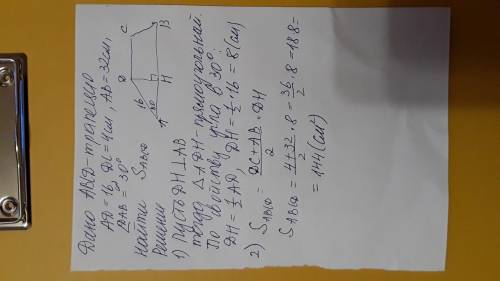 Дано ABCD-трапеция
AD = 16, DC = 4см, AB = 32см,
∠DAB = 30°
Найти S ABCD
Решение
C
B
D
H
A
16
30
1) Пусть DH⊥AB
тогда △ADH - прямоугольный.
По свойству угла в 30°:
DH = ½ AD, DH = ½ · 16 = 8 (см)
2) S ABCD = DC + AB / 2 · DH
S ABCD = 4 + 32 / 2 · 8 = 36 / 2 · 8 = 18·8 =
= 144 (см²)